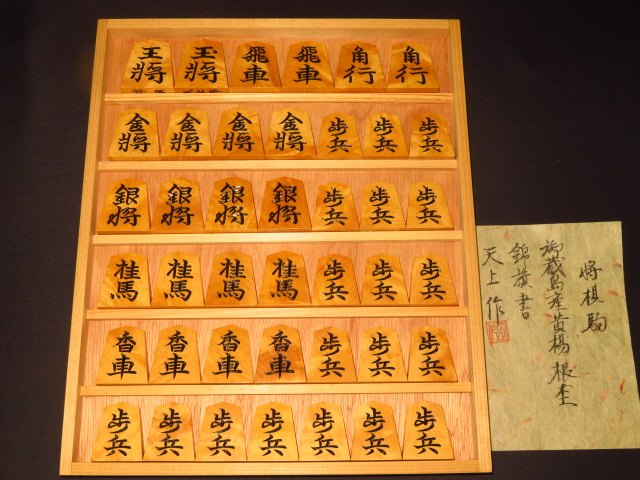 王將 玉將 飛車 飛車 角行 角行
金將 金將 金將 金將 歩兵 歩兵 歩兵
銀將 銀將 銀將 銀將 歩兵 歩兵 歩兵
桂馬 桂馬 桂馬 桂馬 歩兵 歩兵 歩兵
香車 香車 香車 香車 歩兵 歩兵 歩兵
歩兵 歩兵 歩兵 歩兵 歩兵 歩兵 歩兵
将棋駒
御蔵島産黄楊根杢
錦旗書
天上作